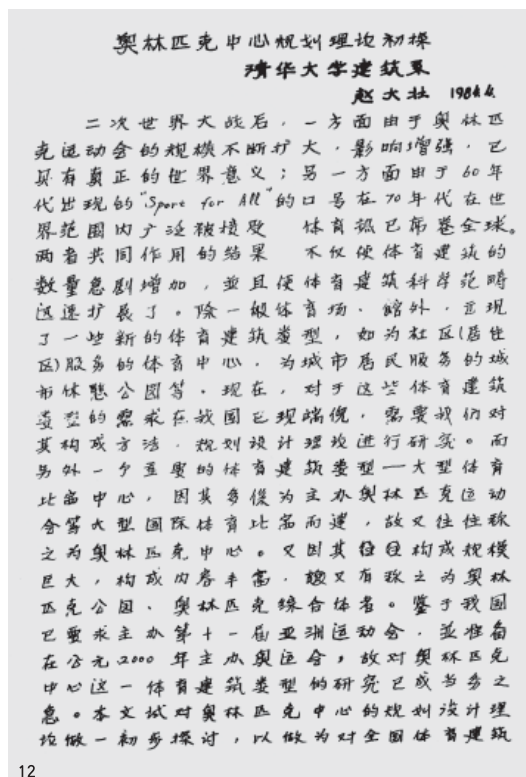 奥林匹克中心规划理论初探
清华大学建筑系
赵大壮 1984.4.
二次世界大战后,一方面由于奥林匹
克运动会的规模不断扩大,影响增强,已
具有真正的世界意义;另一方面由于60年
代出现的“Sport for All”的口号在70年代在世
界范围内广泛被接受 体育热已席卷全球。
两者共同作用的结果 不仅使体育建筑的
数量急剧增加,並且使体育建筑科学范畴
迅速扩展了。除一般体育场、馆外,出现
了一些新的体育建筑类型,如为社区(居住
区)服务的体育中心,为城市居民服务的城
市休憩公园等。现在,对于这些体育建筑
类型的需求在我国已现端倪,需要我们对
其构成方法、规划设计理论进行研究。而
另外一个重要的体育建筑类型—大型体育
比赛中心,因其多僅为主办奥林匹克运动
会等大型国际体育比赛而建,故又往往称
之为奥林匹克中心。又因其往往构成规模
巨大,构成内容丰富,故又有称之为奥林
匹克公园、奥林匹克综合体者。鉴于我国
已要求主办第十一届亚洲运动会,並准备
在公元2000年主办奥运会,故对奥林匹克
中心这一体育建筑类型的研究已成当务之
急。本文试对奥林匹克中心的规划设计理
论做一初步探讨,以做为对全国体育建筑
12